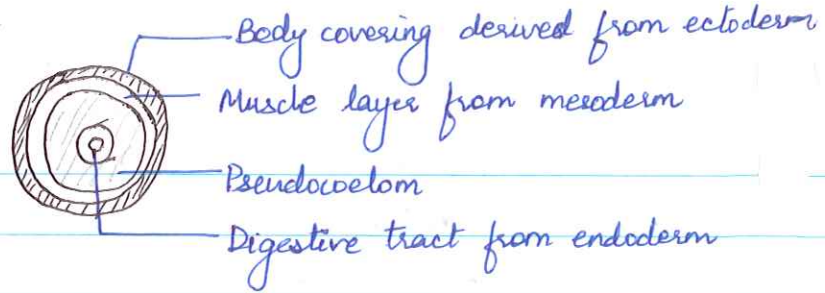 Body covering derived from ectoderm
Muscle layer from mesoderm
Pseudocoelom
Digestive tract from endoderm